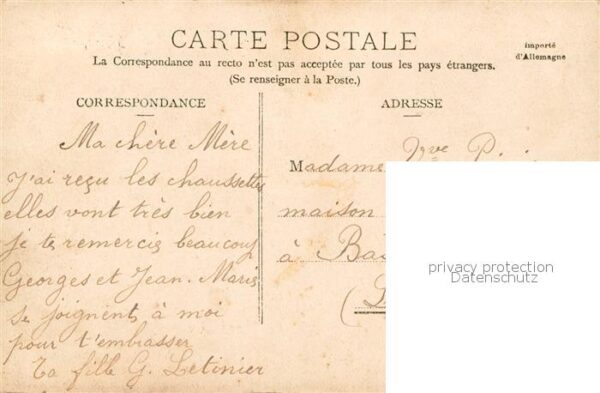 CARTE POSTALE
importé
d'Allemagne
La Correspondance au recto n'est pas acceptée par tous les pays étrangers.
(Se renseigner à la Poste.)
CORRESPONDANCE
ADRESSE
Ma chère Mère
J'ai reçu les chaussettes
elles vont très bien
je te remercie beaucoup
Georges et Jean. Marie
se joignent à moi
pour t'embrasser
Ta fille G. Letinier
Madame Vve
maison
à
privacy protection
Datenschutz